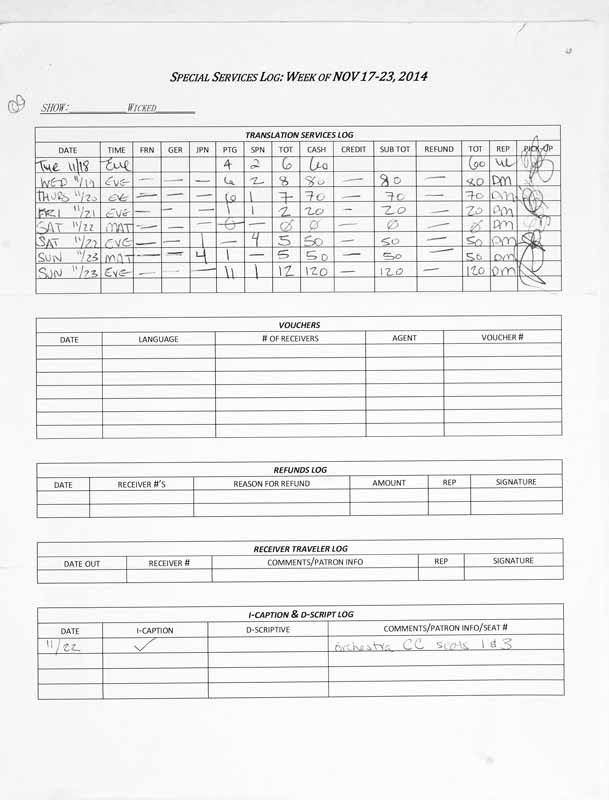 SPECIAL SERVICES LOG: WEEK OF NOV 17-23, 2014
SHOW: WICKED
TRANSLATION SERVICES LOG
DATE TIME FRN GER JPN PTG SPN TOT CASH CREDIT SUB TOT REFUND TOT REP PICK-UP
Tue 11/18 Eve 4 2 6 60 60
WED 11/19 EVE — — — 6 2 8 80 — 80 — 80 DM
THURS 11/20 EVE — — — 6 1 7 70 — 70 — 70 DM
FRI 11/21 EVE — — — 1 1 2 20 — 20 — 20 DM
SAT 11/22 MAT — — — 0 — Ø Ø — Ø — Ø DM
SAT 11/22 EVE — — 1 — 4 5 50 — 50 — 50 DM
SUN 11/23 MAT — — 4 1 — 5 50 — 50 — 50 DM
SUN 11/23 EVE — — — 11 1 12 120 — 120 — 120 DM
VOUCHERS
DATE LANGUAGE # OF RECEIVERS AGENT VOUCHER #
REFUNDS LOG
DATE RECEIVER #'S REASON FOR REFUND AMOUNT REP SIGNATURE
RECEIVER TRAVELER LOG
DATE OUT RECEIVER # COMMENTS/PATRON INFO REP SIGNATURE
I-CAPTION & D-SCRIPT LOG
DATE I-CAPTION D-SCRIPTIVE COMMENTS/PATRON INFO/SEAT #
11/22 ✓ orchestra CC seats 1 & 3